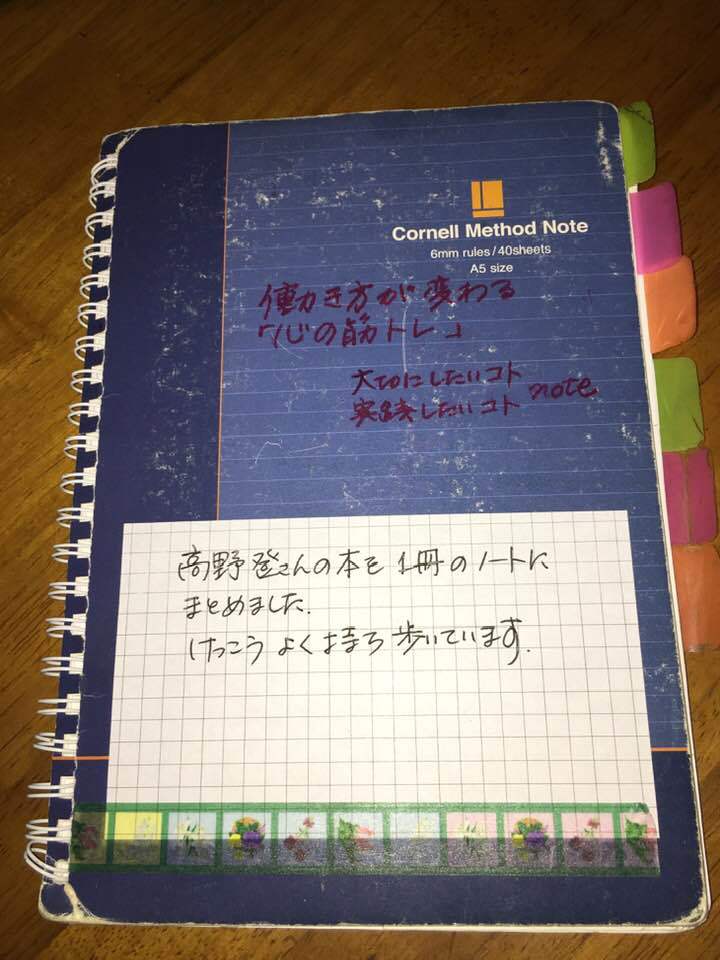 Cornell Method Note
6mm rules/40sheets
A5 size
働き方が変わる
「心の筋トレ」
大切にしたいコト
実践したいコト note
高野登さんの本を1冊のノートに
まとめました.
けっこうよく持ち歩いています.